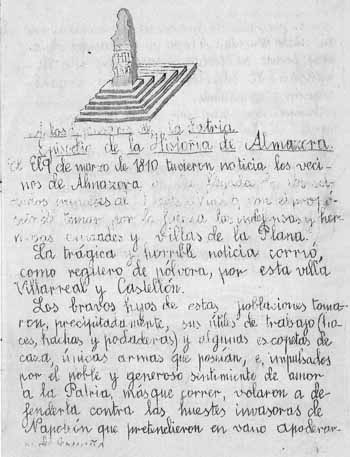 A los mártires de la Patria
Episodio de la Historia de Almazora.
El 9 de marzo de 1810 tuvieron noticia los veci-
nos de Almazora
de tomar por la fuerza las indefensas y her-
mosas ciudades y villas de la Plana.
La trágica y horrible noticia corrió,
como reguero de pólvora, por esta villa
Villarreal y Castellón.
Los bravos hijos de estas poblaciones toma-
ron, precipitadamente, sus útiles de trabajo (ho-
ces, hachas y podaderas) y algunas escopetas de
caza, únicas armas que poseían, e, impulsados
por el noble y generoso sentimiento de amor
a la Patria, más que correr, volaron a de-
fenderla contra las huestes invasoras de
Napoleón que pretendieron en vano apoderar-